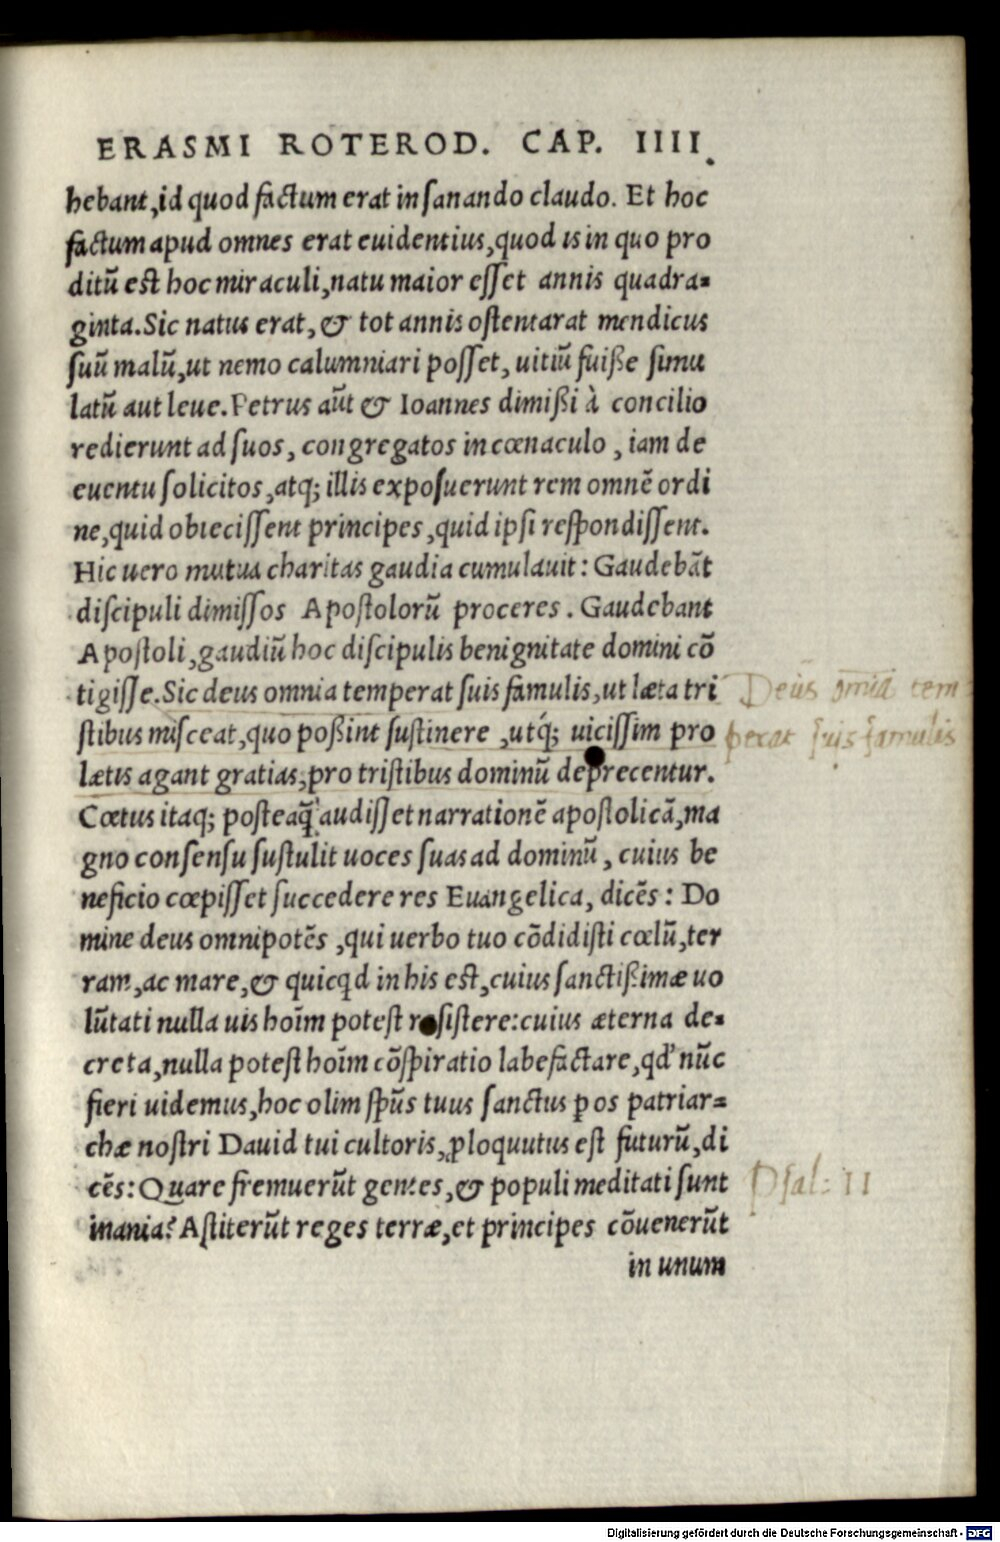 ERASMI ROTEROD. CAP. IIII.
hebant, id quod factum erat in sanando claudo. Et hoc
factum apud omnes erat euidentius, quod is in quo pro
ditũ est hoc miraculi, natu maior esset annis quadra=
ginta. Sic natus erat, & tot annis ostentarat mendicus
suũ malũ, ut nemo calumniari posset, uitiũ fuiße simu
latũ aut leue. Petrus aũt & Ioannes dimißi à concilio
redierunt ad suos, congregatos in cœnaculo, iam de
euentu solicitos, atq; illis exposuerunt rem omnẽ ordi
ne, quid obiecissent principes, quid ipsi respondissent.
Hic uero mutua charitas gaudia cumulauit: Gaudebãt
discipuli dimissos Apostolorũ proceres. Gaudebant
Apostoli, gaudiũ hoc discipulis benignitate domini cõ
tigisse. Sic deus omnia temperat suis famulis, ut læta tri
Deus om̃ia tem
stibus misceat, quo poßint sustinere, utq́; uicissim pro
perat suis famulis
lætis agant gratias, pro tristibus dominũ deprecentur.
Cœtus itaq; posteaq̃ audisset narrationẽ apostolicã, ma
gno consensu sustulit uoces suas ad dominũ, cuius be
neficio cœpisset succedere res Euangelica, dicẽs: Do
mine deus omnipotẽs, qui uerbo tuo cõdidisti cœlũ, ter
ram, ac mare, & quicqd in his est, cuius sanctißimæ uo
lũtati nulla uis hoĩm potest resistere: cuius æterna de=
creta, nulla potest hoĩm cõspiratio labefactare, qđ nũc
fieri uidemus, hoc olim sp̃us tuus sanctus ꝑ os patriar=
chæ nostri Dauid tui cultoris, ꝓloquutus est futurũ, di
cẽs: Quare fremuerũt gentes, & populi meditati sunt
Psal: II
inania? Astiterũt reges terræ, et principes cõuenerũt
in unum
Digitalisierung gefördert durch die Deutsche Forschungsgemeinschaft - DFG